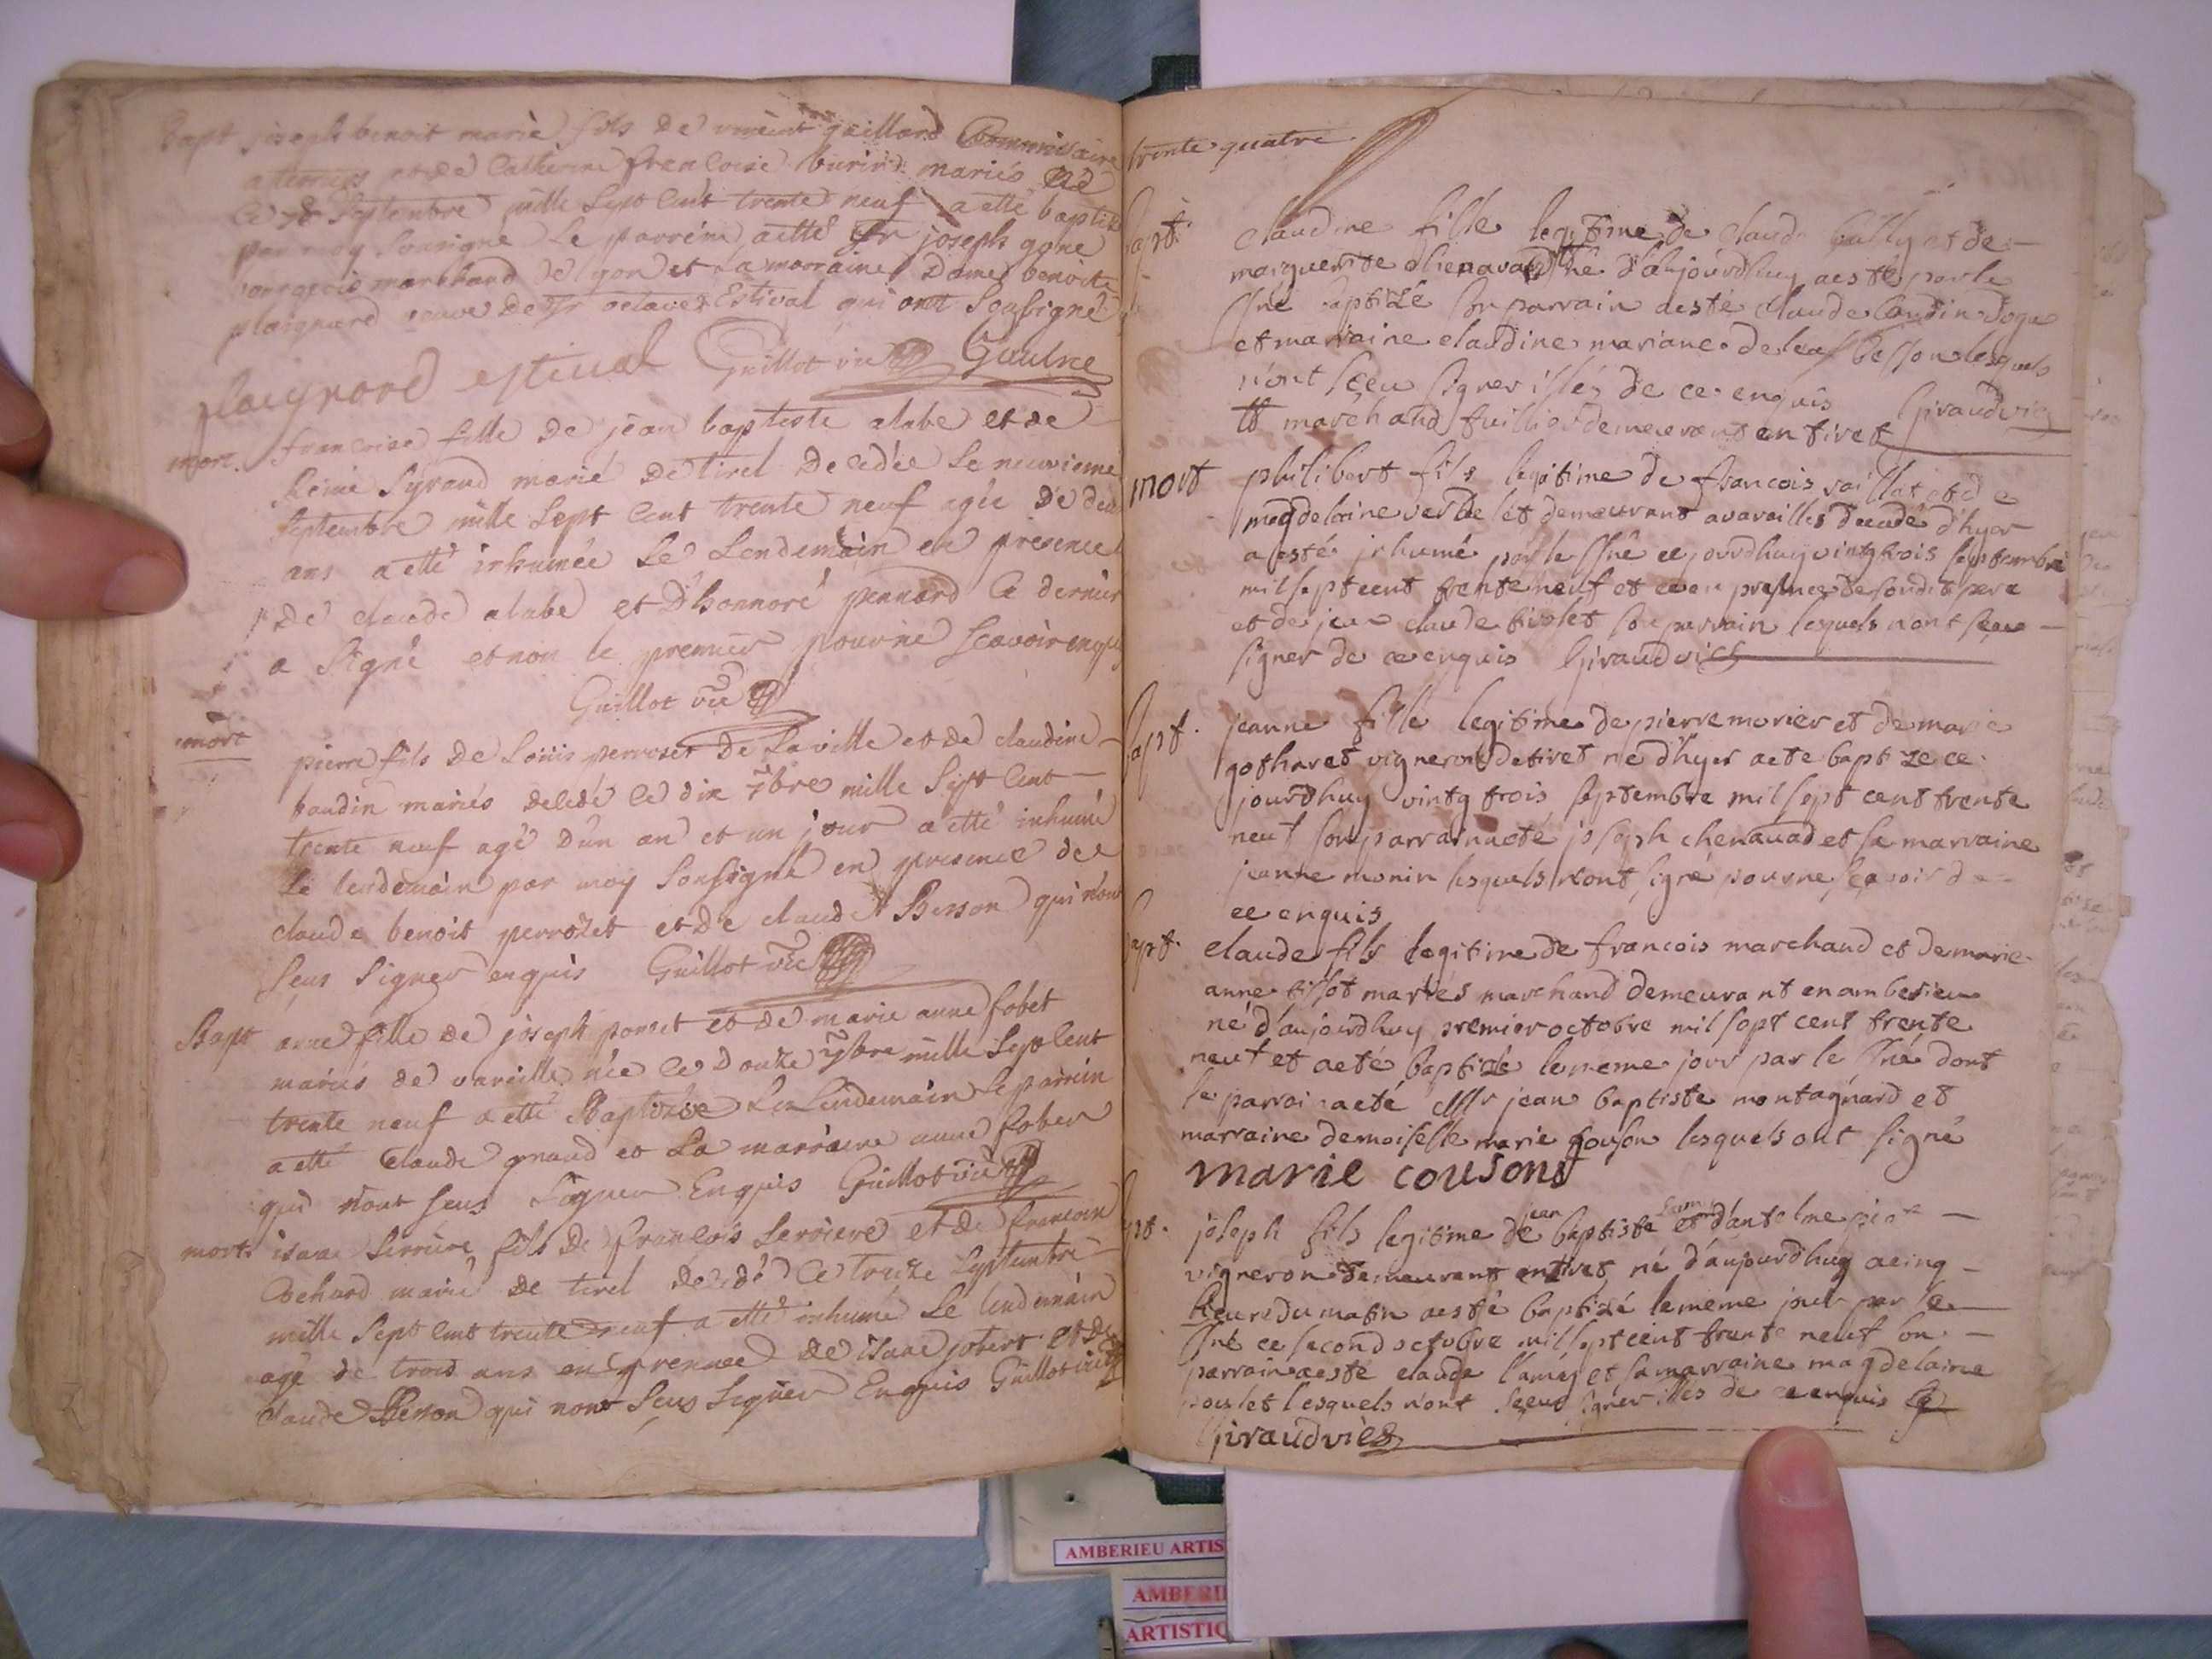 Bapt joseph benoit marie fils De vincent gaillard Commissaire
a terriers et de Catherine francoise burin mariés né
Ce Septembre mille Sept Cent trente neuf a etté baptisé
par moy Sousigné Le parrein a etté Sr joseph gone
bourgeois marchand de lyon et La marraine Dame benoite
plaignard veuve De Sr octave Estival qui ont Sousigné
plaignard estival Guillot vic Gaulne
mort. francoise fille De jean baptiste alabe et de
Reine Syraud marié De tiret Decedée Le neuvieme
Septembre mille Sept Cent trente neuf agée De deux
ans a etté inhumée Le Lendemain en presence
De claude alabe et D'honnoré pennard Ce dernier
a Signé et non le premier pour ne Scavoir enquis
Guillot vic
mort pierre fils De Loüis perroset De Laville et de claudine
baudin mariés decedé Ce dix 7bre mille Sept Cent
trente neuf agé D'un an et un jour a etté inhumé
Le lendemain par moy Sousigné en presence de
claude benoit perrozet et de claude Besson qui n'ont
Seus Signer enquis Guillot vic
Bapt anne fille de joseph ponset et de marie anne fobet
mariés de vareille née Ce Douze 7bre mille Sept Cent
trente neuf a etté Baptisée Le Lendemain Le parrein
a etté Claude et La marraine anne fober
qui n'ont Seus Signer Enquis Guillot vic
morts isaac Serriere fils De francois Serriere et de francoise
Bechard marié de tiret decedé Ce treize Septembre
mille Sept Cent trente neuf a etté inhumé Le lendemain
agé de trois ans en presence de isaac jobert et de
claude Besson qui n'ont Seus Signer Enquis Guillot vic
trente quatre
bapt. claudine fille legitime de claude bally et de
marguerite chenavad né d'aujourdhuy aesté par le
sné baptizé son parrain aesté claude
et marraine claudine mariane de besson lesquels
n'ont sceu signer illés de ce enquis Giraud vic
marchand tuillier demeurant en tiret
mort philibert fils legitime de francois vaillat et de
magdelaine demeurant avareilles decedé d'hyer
a esté inhumé par le sné ce jourdhuy vintg trois septembre
mil sept cent trente neuf et ce en presence de sondit pere
et de jean claude tiolet son parrain lesquels n'ont sceu
signer de ce enquis Giraud vic
bapt. jeanne fille legitime de pierre morier et de marie
gotharet vigneron de tiret né d'hyer aeté baptize ce
jourdhuy vintg trois septembre mil sept cent trente
neuf son parrain aeté joseph chenavad et sa marraine
jeanne monin lesquels n'ont signé pour ne scavoir de
ce enquis
bapt. claude fils legitime de francois marchand et de marie
anne tissot mariés marchand demeurant en amberieu
né d'aujourdhuy premier octobre mil sept cent trente
neuf et aeté baptizé le meme jour par le sné dont
le parrain aeté Mr jean baptiste montagnard et
marraine demoiselle marie couson lesquels ont signé
marie couson
bapt. joseph fils legitime de jean baptiste et d'antelme
vigneron demeurant entiret né d'aujourdhuy acinq
heure du matin aesté baptizé le meme jour par le
sné ce second octobre mil sept cent trente neuf son
parrain aesté claude l'amy et sa marraine magdelaine
poulet lesquels n'ont sceu signer illés de ce enquis
Giraud vic
AMBERIEU ARTIS
AMBERI
ARTISTIQ